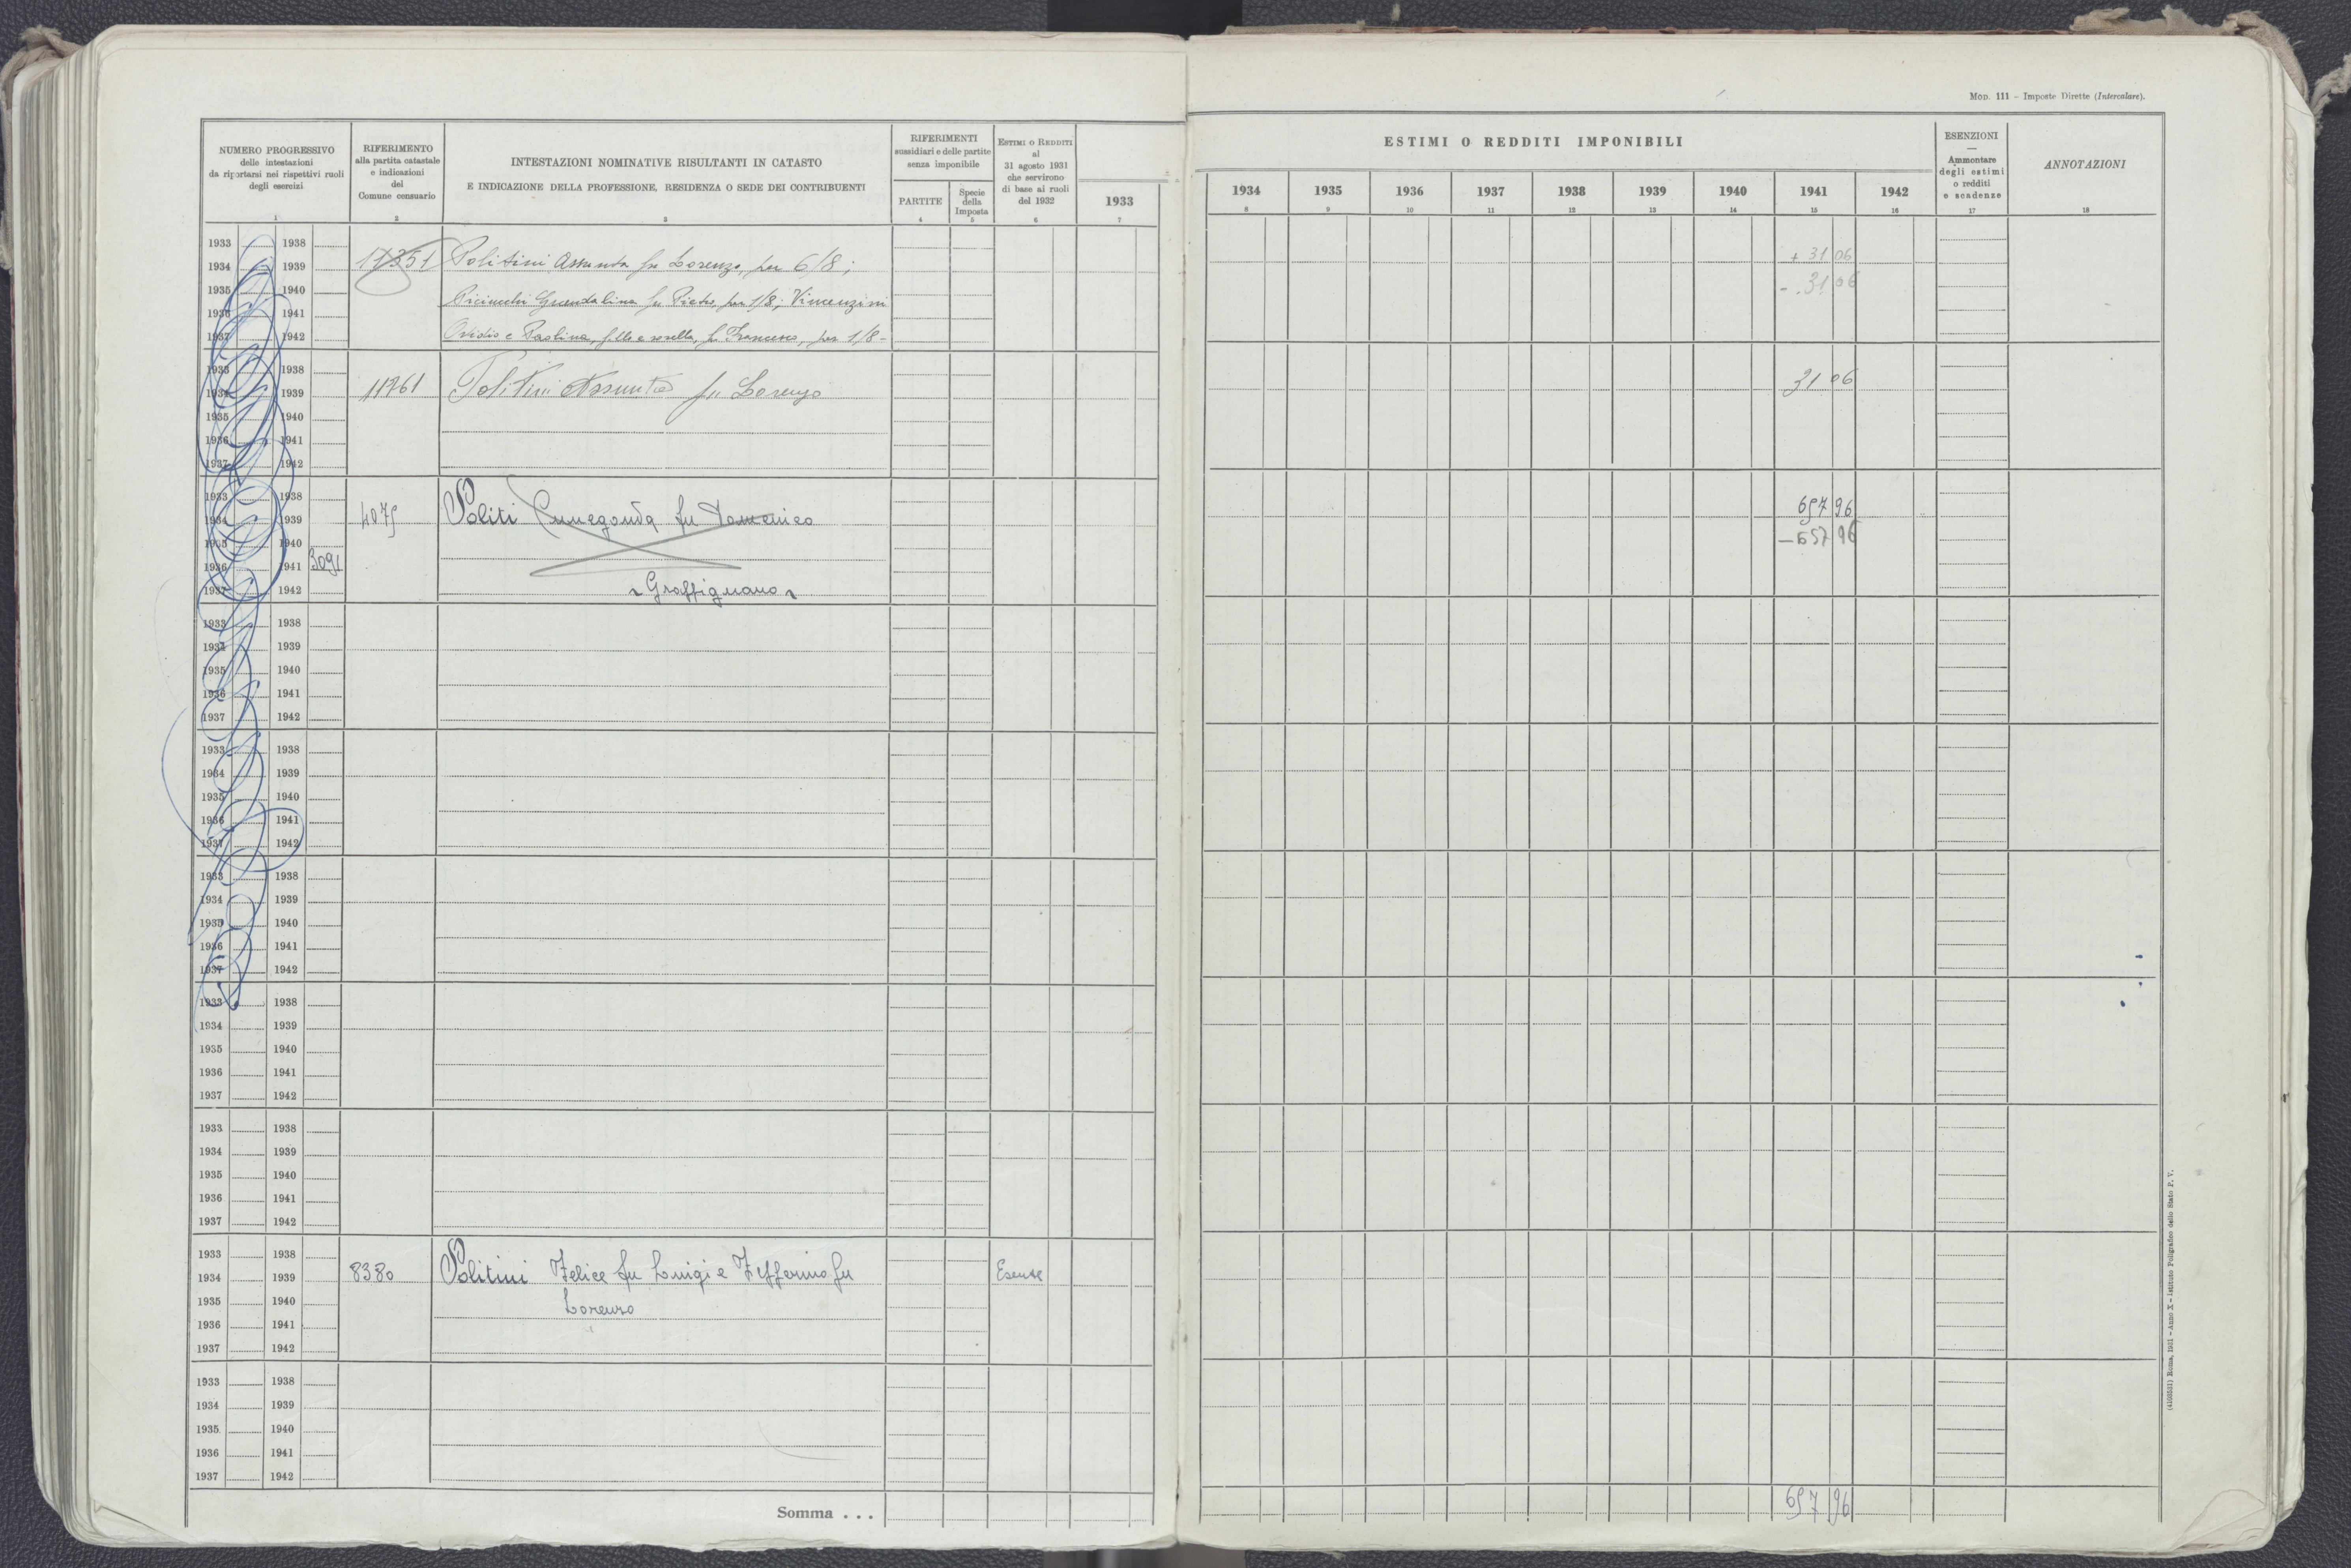 Mod. 111 - Imposte Dirette (Intercalare).
NUMERO PROGRESSIVO
delle intestazioni
da riportarsi nei rispettivi ruoli
degli esercizi
1
RIFERIMENTO
alla partita catastale
e indicazioni
del
Comune censuario
2
INTESTAZIONI NOMINATIVE RISULTANTI IN CATASTO
E INDICAZIONE DELLA PROFESSIONE, RESIDENZA O SEDE DEI CONTRIBUENTI
3
RIFERIMENTI
sussidiari e delle partite
senza imponibile
PARTITE
4
Specie
della
Imposta
5
ESTIMI O REDDITI
al
31 agosto 1931
che servirono
di base ai ruoli
del 1932
6
1933
7
ESTIMI O REDDITI IMPONIBILI
1934 1935 1936 1937 1938 1939 1940 1941 1942
8 9 10 11 12 13 14 15 16
ESENZIONI
—
Ammontare
degli estimi
o redditi
e scadenze
17
ANNOTAZIONI
18
1933 1938
1934 1939 17351 Politini Assunta fu Lorenzo, per 6/8; + 31 06
1935 1940 Guendalina fu Pietro, per 1/8; Vincenzini - 31 06
1936 1941
1937 1942 Ovidio e Paolina, f.llo e sorella, fu Francesco, per 1/8-
1933 1938
1934 1939 11761 Politini Assunta fu Lorenzo 31 06
1935 1940
1936 1941
1937 1942
1933 1938
1934 1939 4075 Politi Cunegonda fu Domenico 657 96
1935 1940 - 657 96
1936 1941 3091
1937 1942 Graffignano
1933 1938
1934 1939
1935 1940
1936 1941
1937 1942
1933 1938
1934 1939
1935 1940
1936 1941
1937 1942
1933 1938
1934 1939
1935 1940
1936 1941
1937 1942
1933 1938
1934 1939
1935 1940
1936 1941
1937 1942
1933 1938
1934 1939
1935 1940
1936 1941
1937 1942
1933 1938
1934 1939 8380 Politini Felice fu Luigi e Zefferino fu Esente
1935 1940 Lorenzo
1936 1941
1937 1942
1933 1938
1934 1939
1935 1940
1936 1941
1937 1942
Somma . . . 657 96
(4150531) Roma, 1931 - Anno X - Istituto Poligrafico dello Stato P. V.